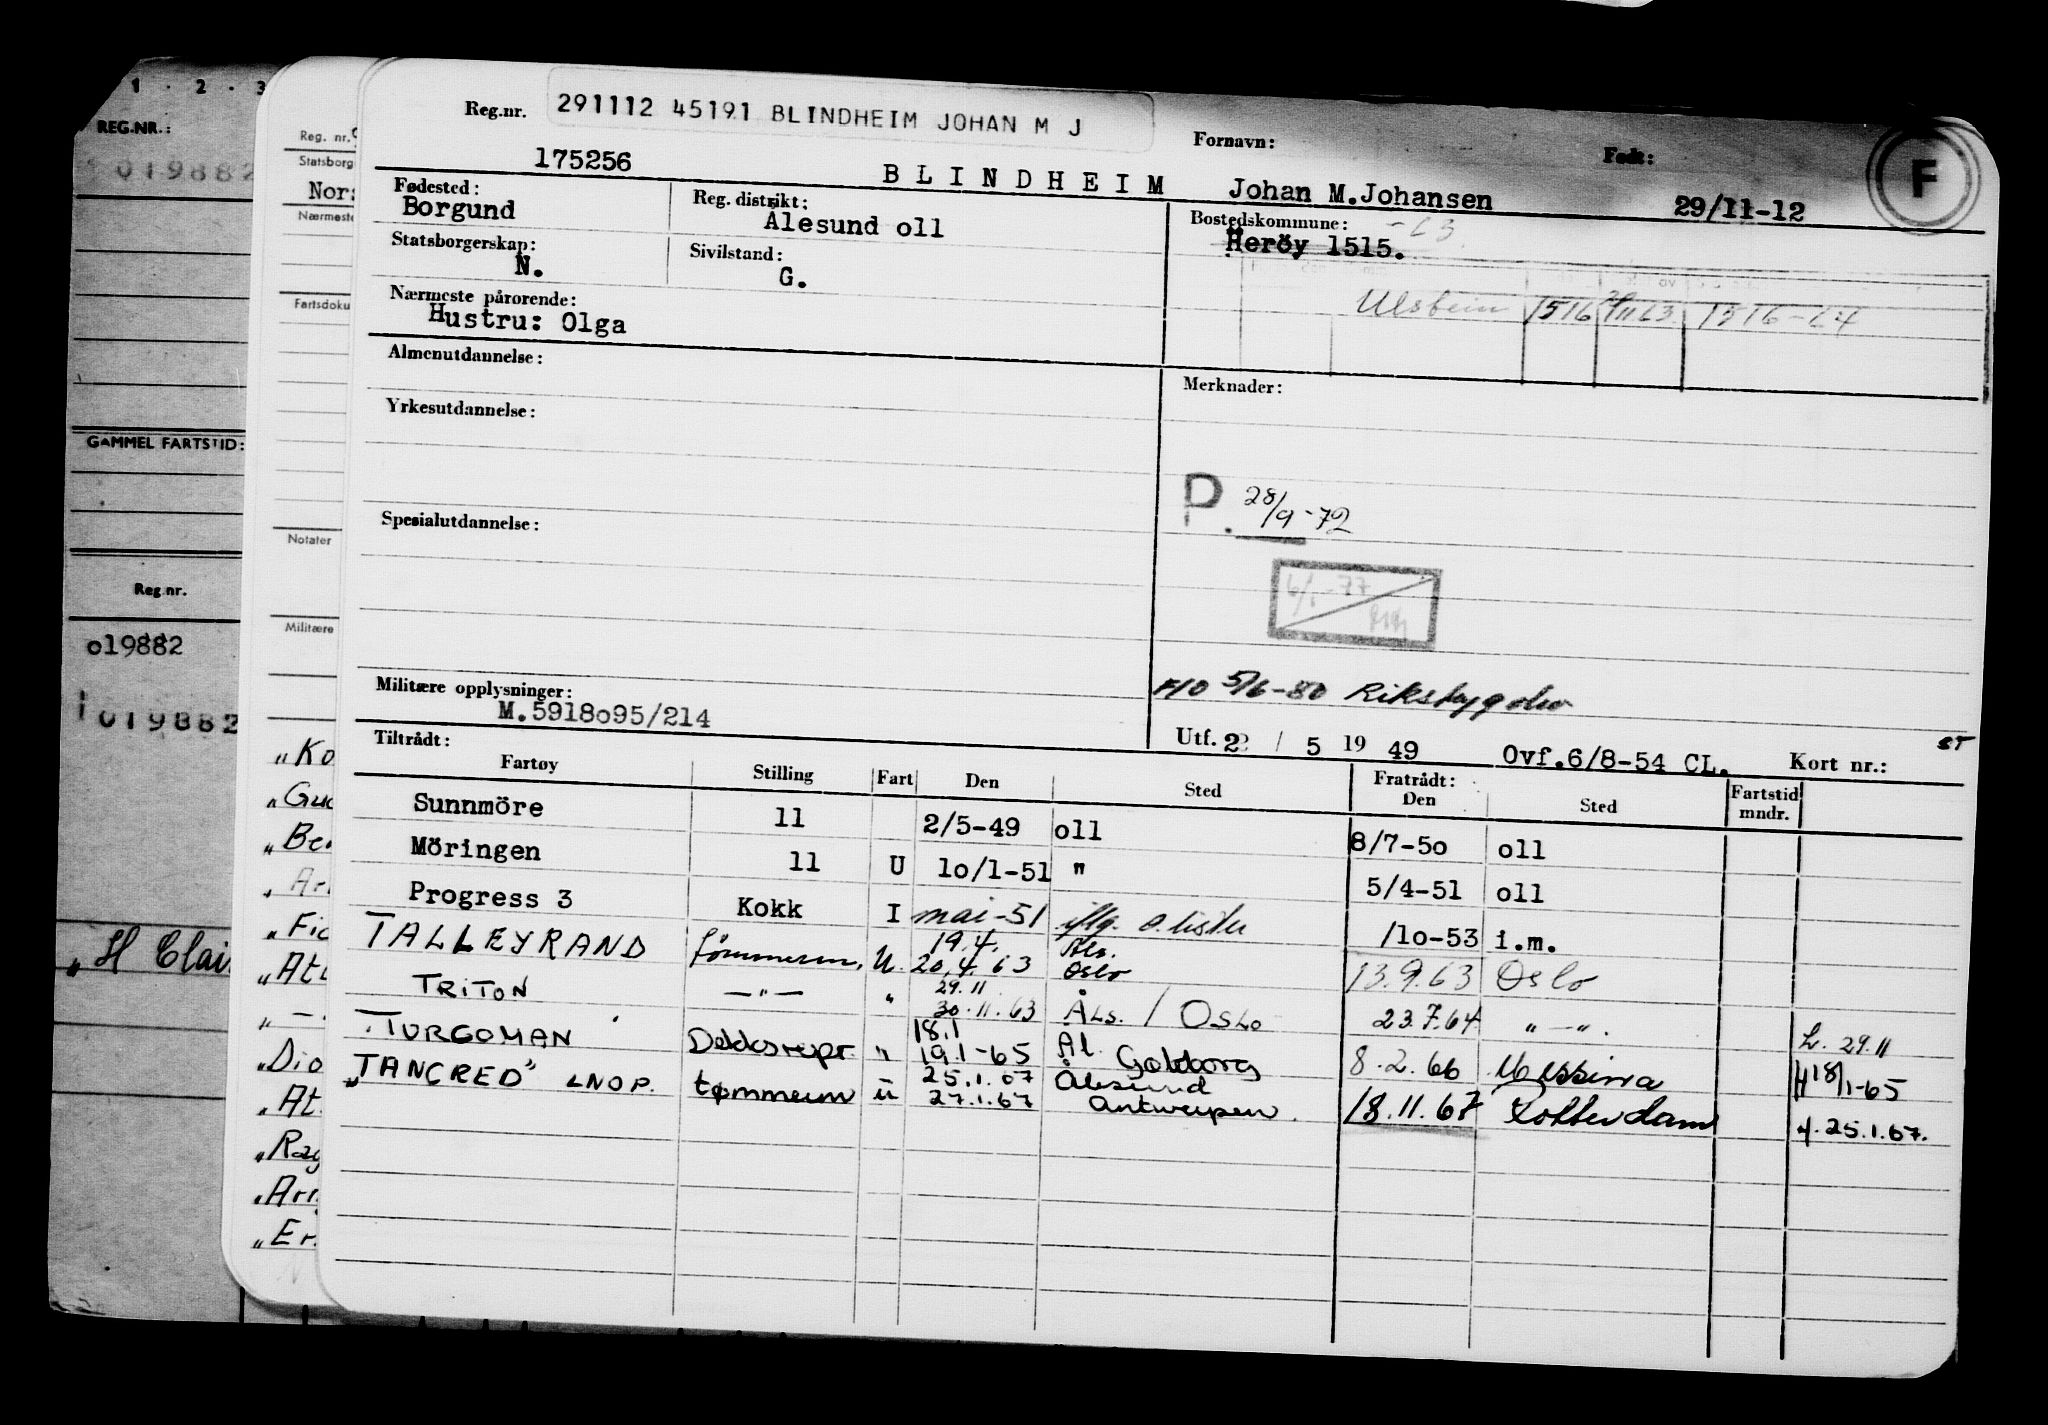 1 . 2 . 3
REG.NR.:
019882
GAMMEL FARTSTID:
Reg.nr.
o19882
019882
„ H Clai
Reg. nr.
Statsborg
Nor
Nærmeste
Fartsdoku
Notater
Militære
„Ko
„Gu
„Be
„Ar
„Fi
„At
„ —
„Dio
„At
„Rag
„Ar
„Er
Reg.nr. 291112 45191 BLINDHEIM JOHAN M J
Fornavn: Født: F
175256 BLINDHEIM Johan M.Johansen 29/11-12
Fødested: Borgund
Reg. distrikt: Ålesund oll
Bostedskommune: -63
Heröy 1515.
Statsborgerskap: N.
Sivilstand: G.
Ulstein 1516 29/11 63 1516-64
Nærmeste pårørende:
Hustru: Olga
Almenutdannelse:
Merknader:
Yrkesutdannelse:
P. 28/9-72
Spesialutdannelse:
6/1-77
5/6-80
Militære opplysninger:
M.5918o95/214
Utf. 22 / 5 19 49 Ovf.6/8-54 CL. Kort nr.: ST
Tiltrådt:
Fartøy Stilling Fart Den Sted Fratrådt: Den Sted Fartstid mndr.
Sunnmöre 11 2/5-49 oll 8/7-5o oll
Möringen 11 U 1o/1-51 " 5/4-51 oll
Progress 3 Kokk I mai-51 iflg. o.lister /1o-53 i.m.
TALLEYRAND tømmerm. U. 19.4. 20.4.63 Åls. Oslo 13.9.63 Oslo
TRITON —"— " 29.11 30.11.63 Åls. / Oslo 23.7.64 " —".
L. 29.11
TURCOMAN Dekksrepr. " 18.1 19.1-65 Ål. Gøteborg 8.2.66 Messina
H 18/1-65
"TANCRED" LNOP. tømmerm ü 25.1.67 27.1.67 Ålesund Antwerpen. 18.11.67 Rotterdam
H. 25.1.67.